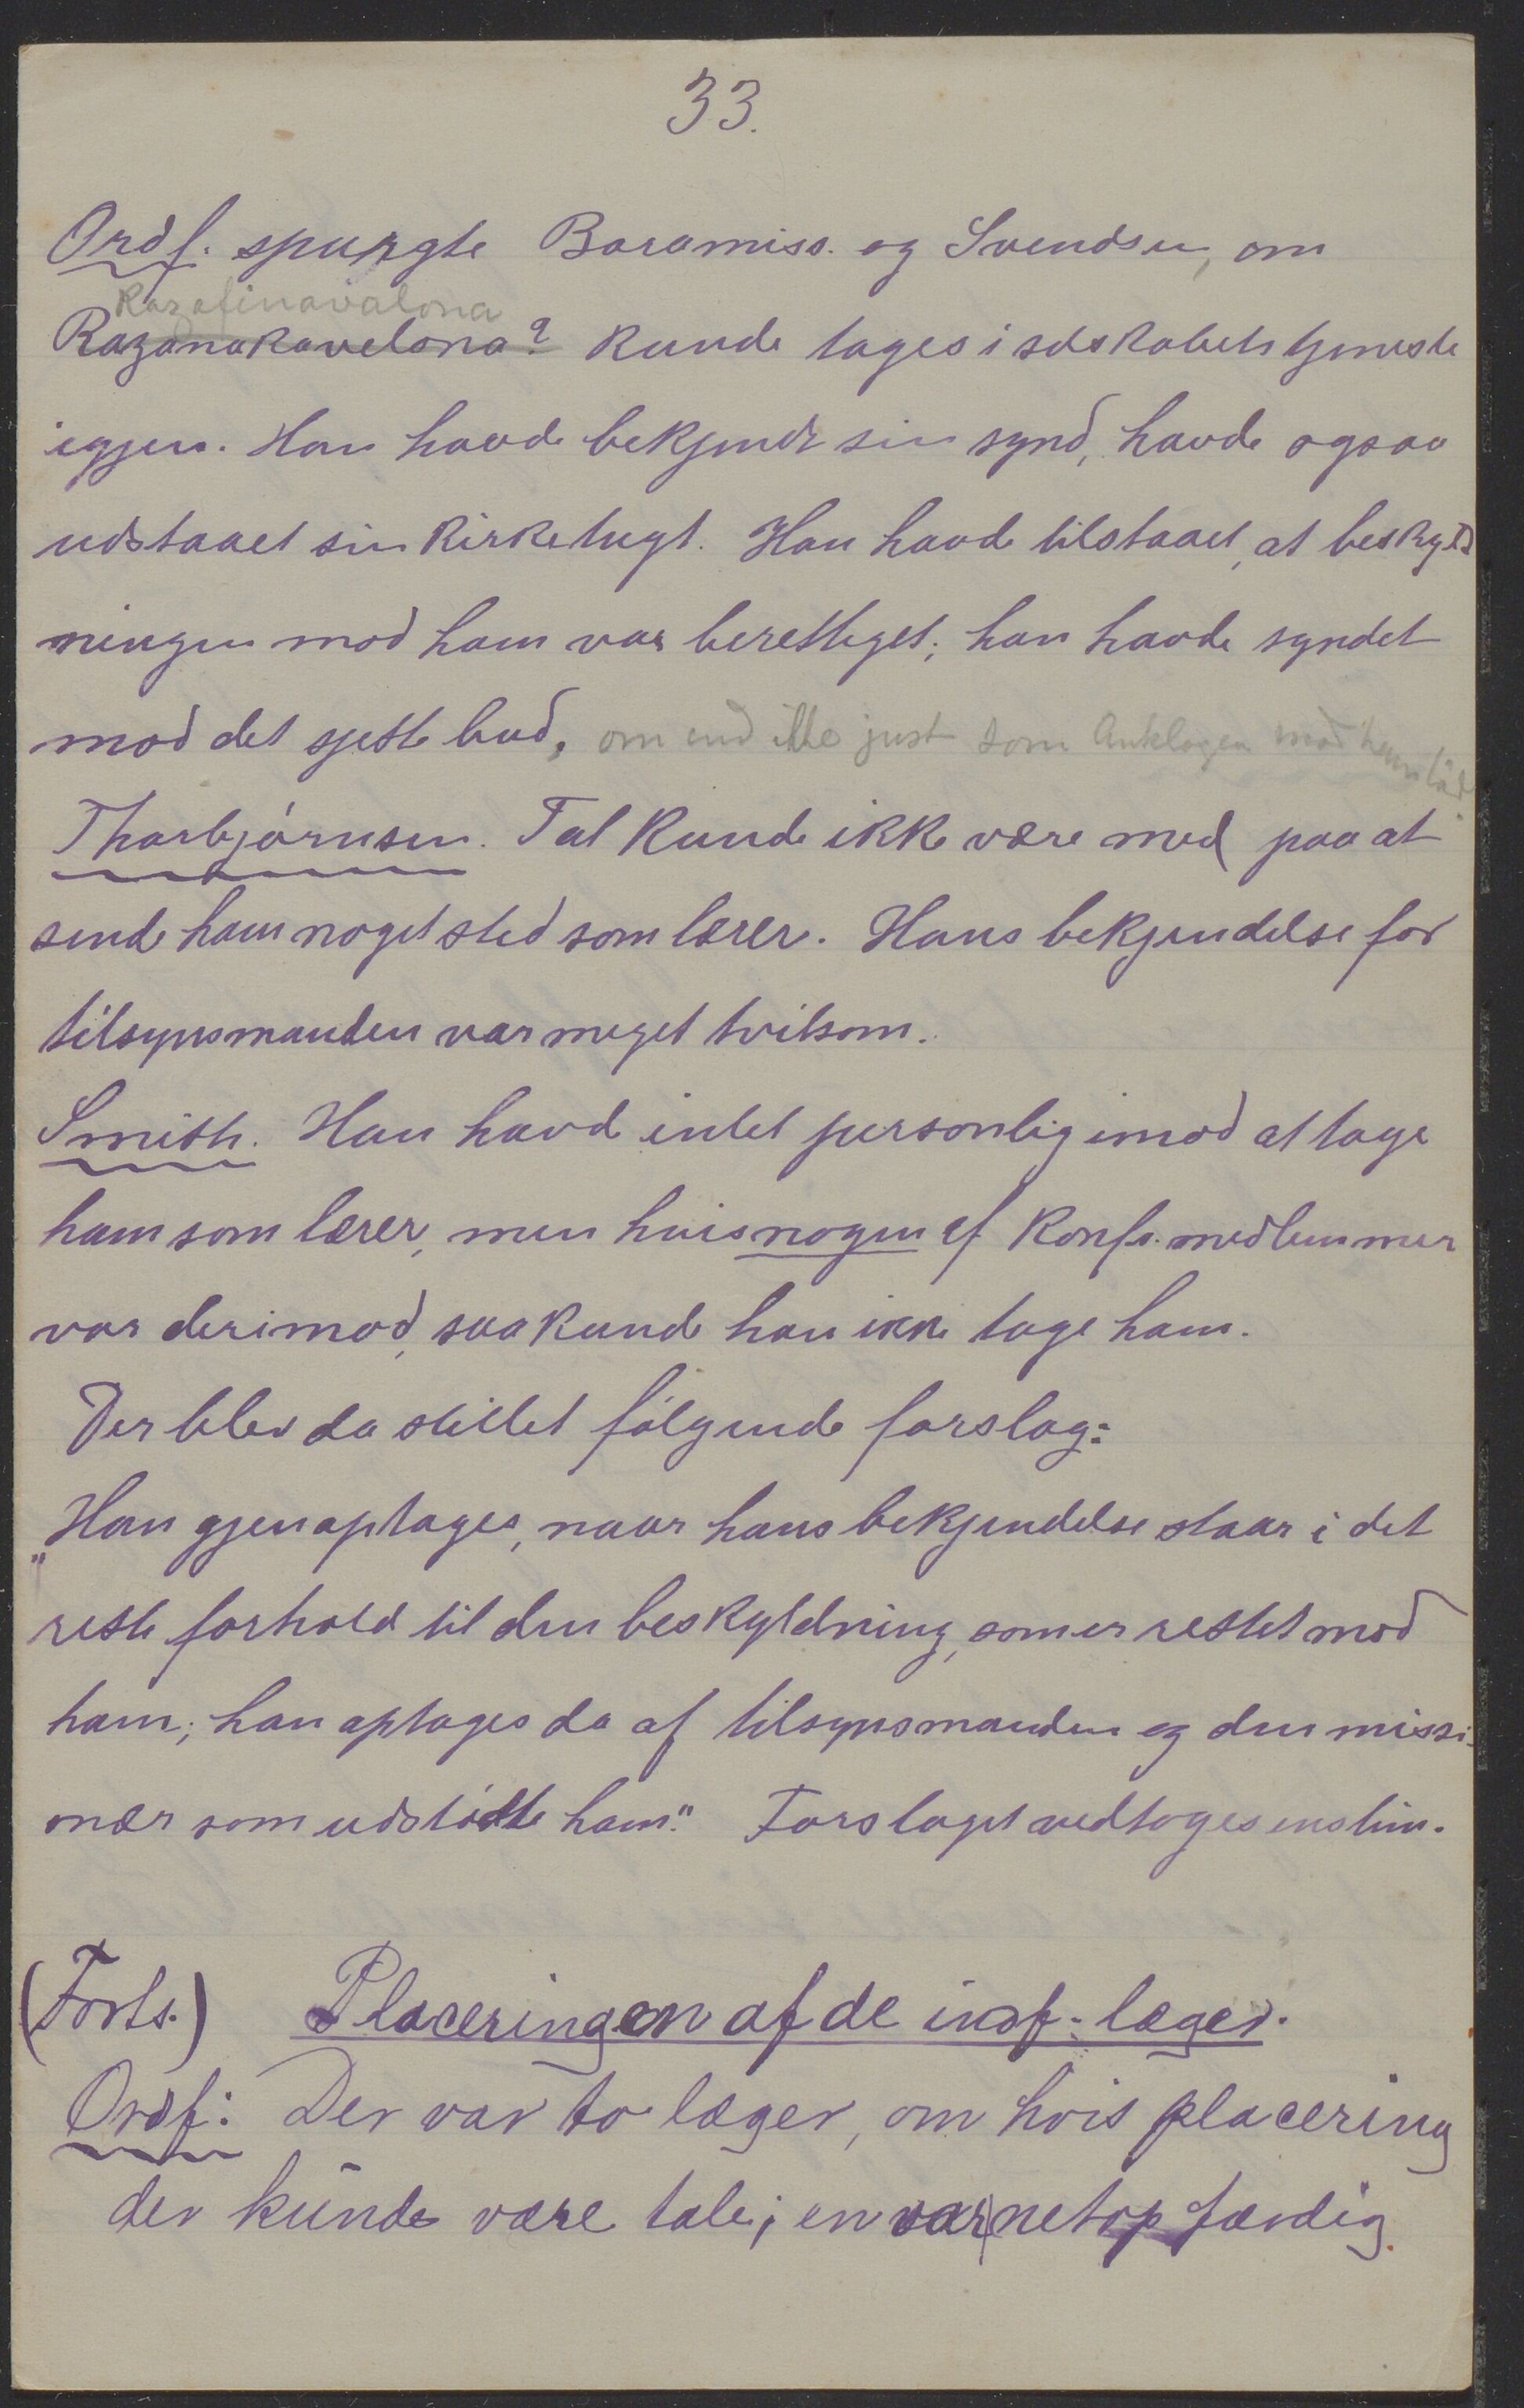 33.
Ordf. spurgte Baramiss. og Svendsen, om
Razafinavalona
Razanakavelona? kunde tages i selskabets tjeneste
igjen. Han havde bekjendt sin synd, havde ogsaa
udstaaet sin kirketugt. Han havde tilstaaet, at beskyld
ningen mod ham var berettiget; han havde syndet
mod det sjette bud, om end ikke just som Anklagen mod ham lød
Thorbjørnsen. Tal kunde ikke være med paa at
sende ham noget sted som lærer. Hans bekjendelse for
tilsynsmanden var meget tvilsom.
Smith. Han havd intet personlig imod at tage
ham som lærer, men hvis nogen af konfs. medlemmer
var derimod, saa kunde han ikke tage ham.
Der blev da stillet følgende forslag:
"Han gjenoptages, naar hans bekjendelse staar i det
rette forhold til den beskyldning, som er rettet mod
ham; han optages da af tilsynsmanden og den missi-
onær som udstødte ham." Forslaget vedtoges enstim.
(Forts.) Placeringen af de indf. læger.
Ordf: Der var to læger, om hvis placering
der kunde være tale; en var netop færdig.